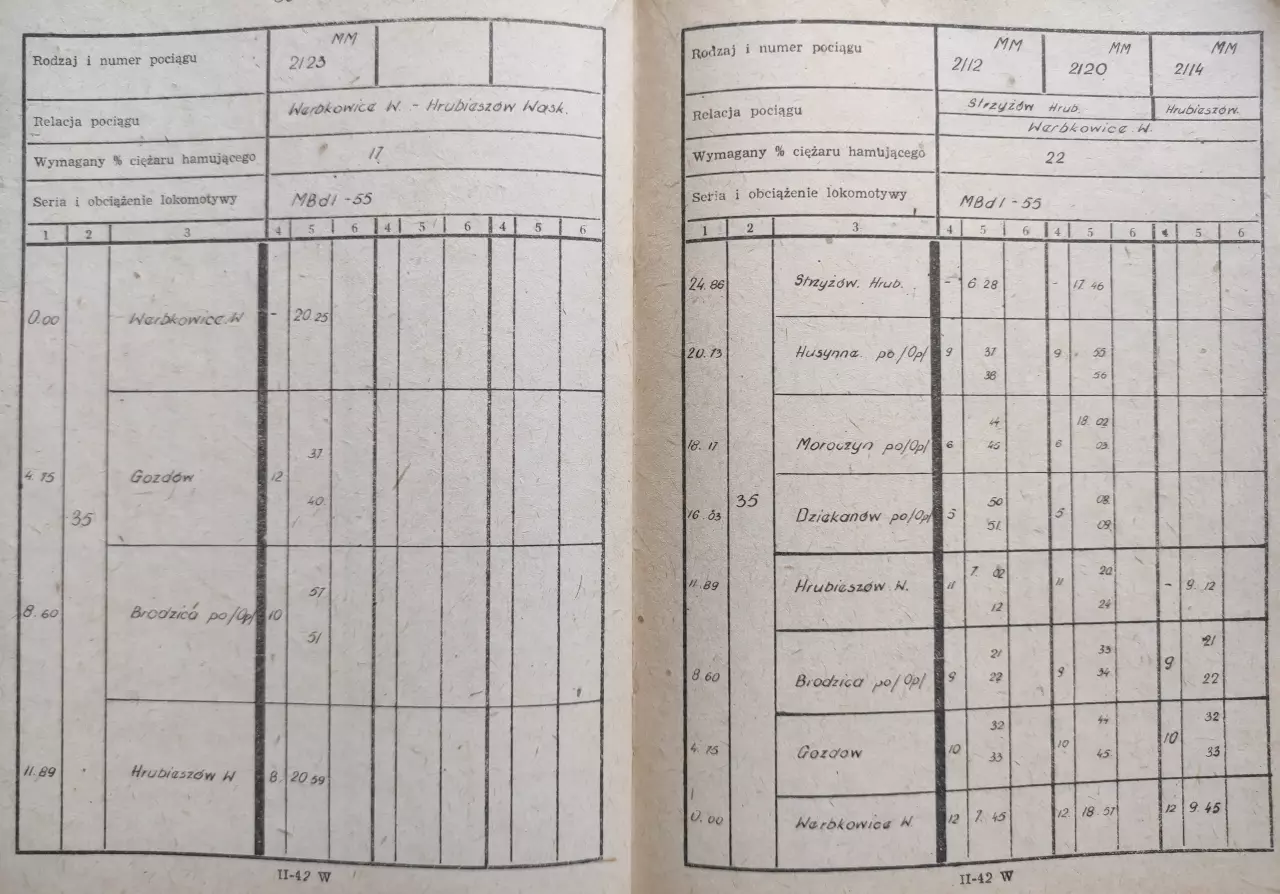 Rodzaj i numer pociągu MM 2123
Relacja pociągu Werbkowice W. - Hrubieszów Wąsk.
Wymagany % ciężaru hamującego 17
Seria i obciążenie lokomotywy MBd1 -55
1 2 3 4 5 6 4 5 6 4 5 6
0.00 Werbkowice.W - 20 25
37
4.75 Gozdów 12
40
35
57
8.60 Brodzica po/Op/ 10
51
11.89 Hrubieszów W 8. 20 59
II-42 W
Rodzaj i numer pociągu MM 2112 MM 2120 MM 2114
Relacja pociągu Strzyżów Hrub. Hrubieszów.
Werbkowice W.
Wymagany % ciężaru hamującego 22
Seria i obciążenie lokomotywy MBd1 -55
1 2 3 4 5 6 4 5 6 4 5 6
24.86 Strzyżów. Hrub. - 6 28 - 17 46
20.73 Husynna. po/Op/ 9 37 9 55
38 56
44 18 02
18.17 Moroczyn po/Op/ 6 45 6 03
35
50 08
16.03 Dziekanów po/Op/ 5 51 5 09
7 02 20
11.89 Hrubieszów W. 11 11 - 9 12
12 24
21 33 21
8.60 Brodzica po/Op/ 9 22 9 34 9 22
32 44 32
4.75 Gozdow 10 33 10 45 10 33
0.00 Werbkowice W 12 7 45 12 18 57 12 9 45
II-42 W